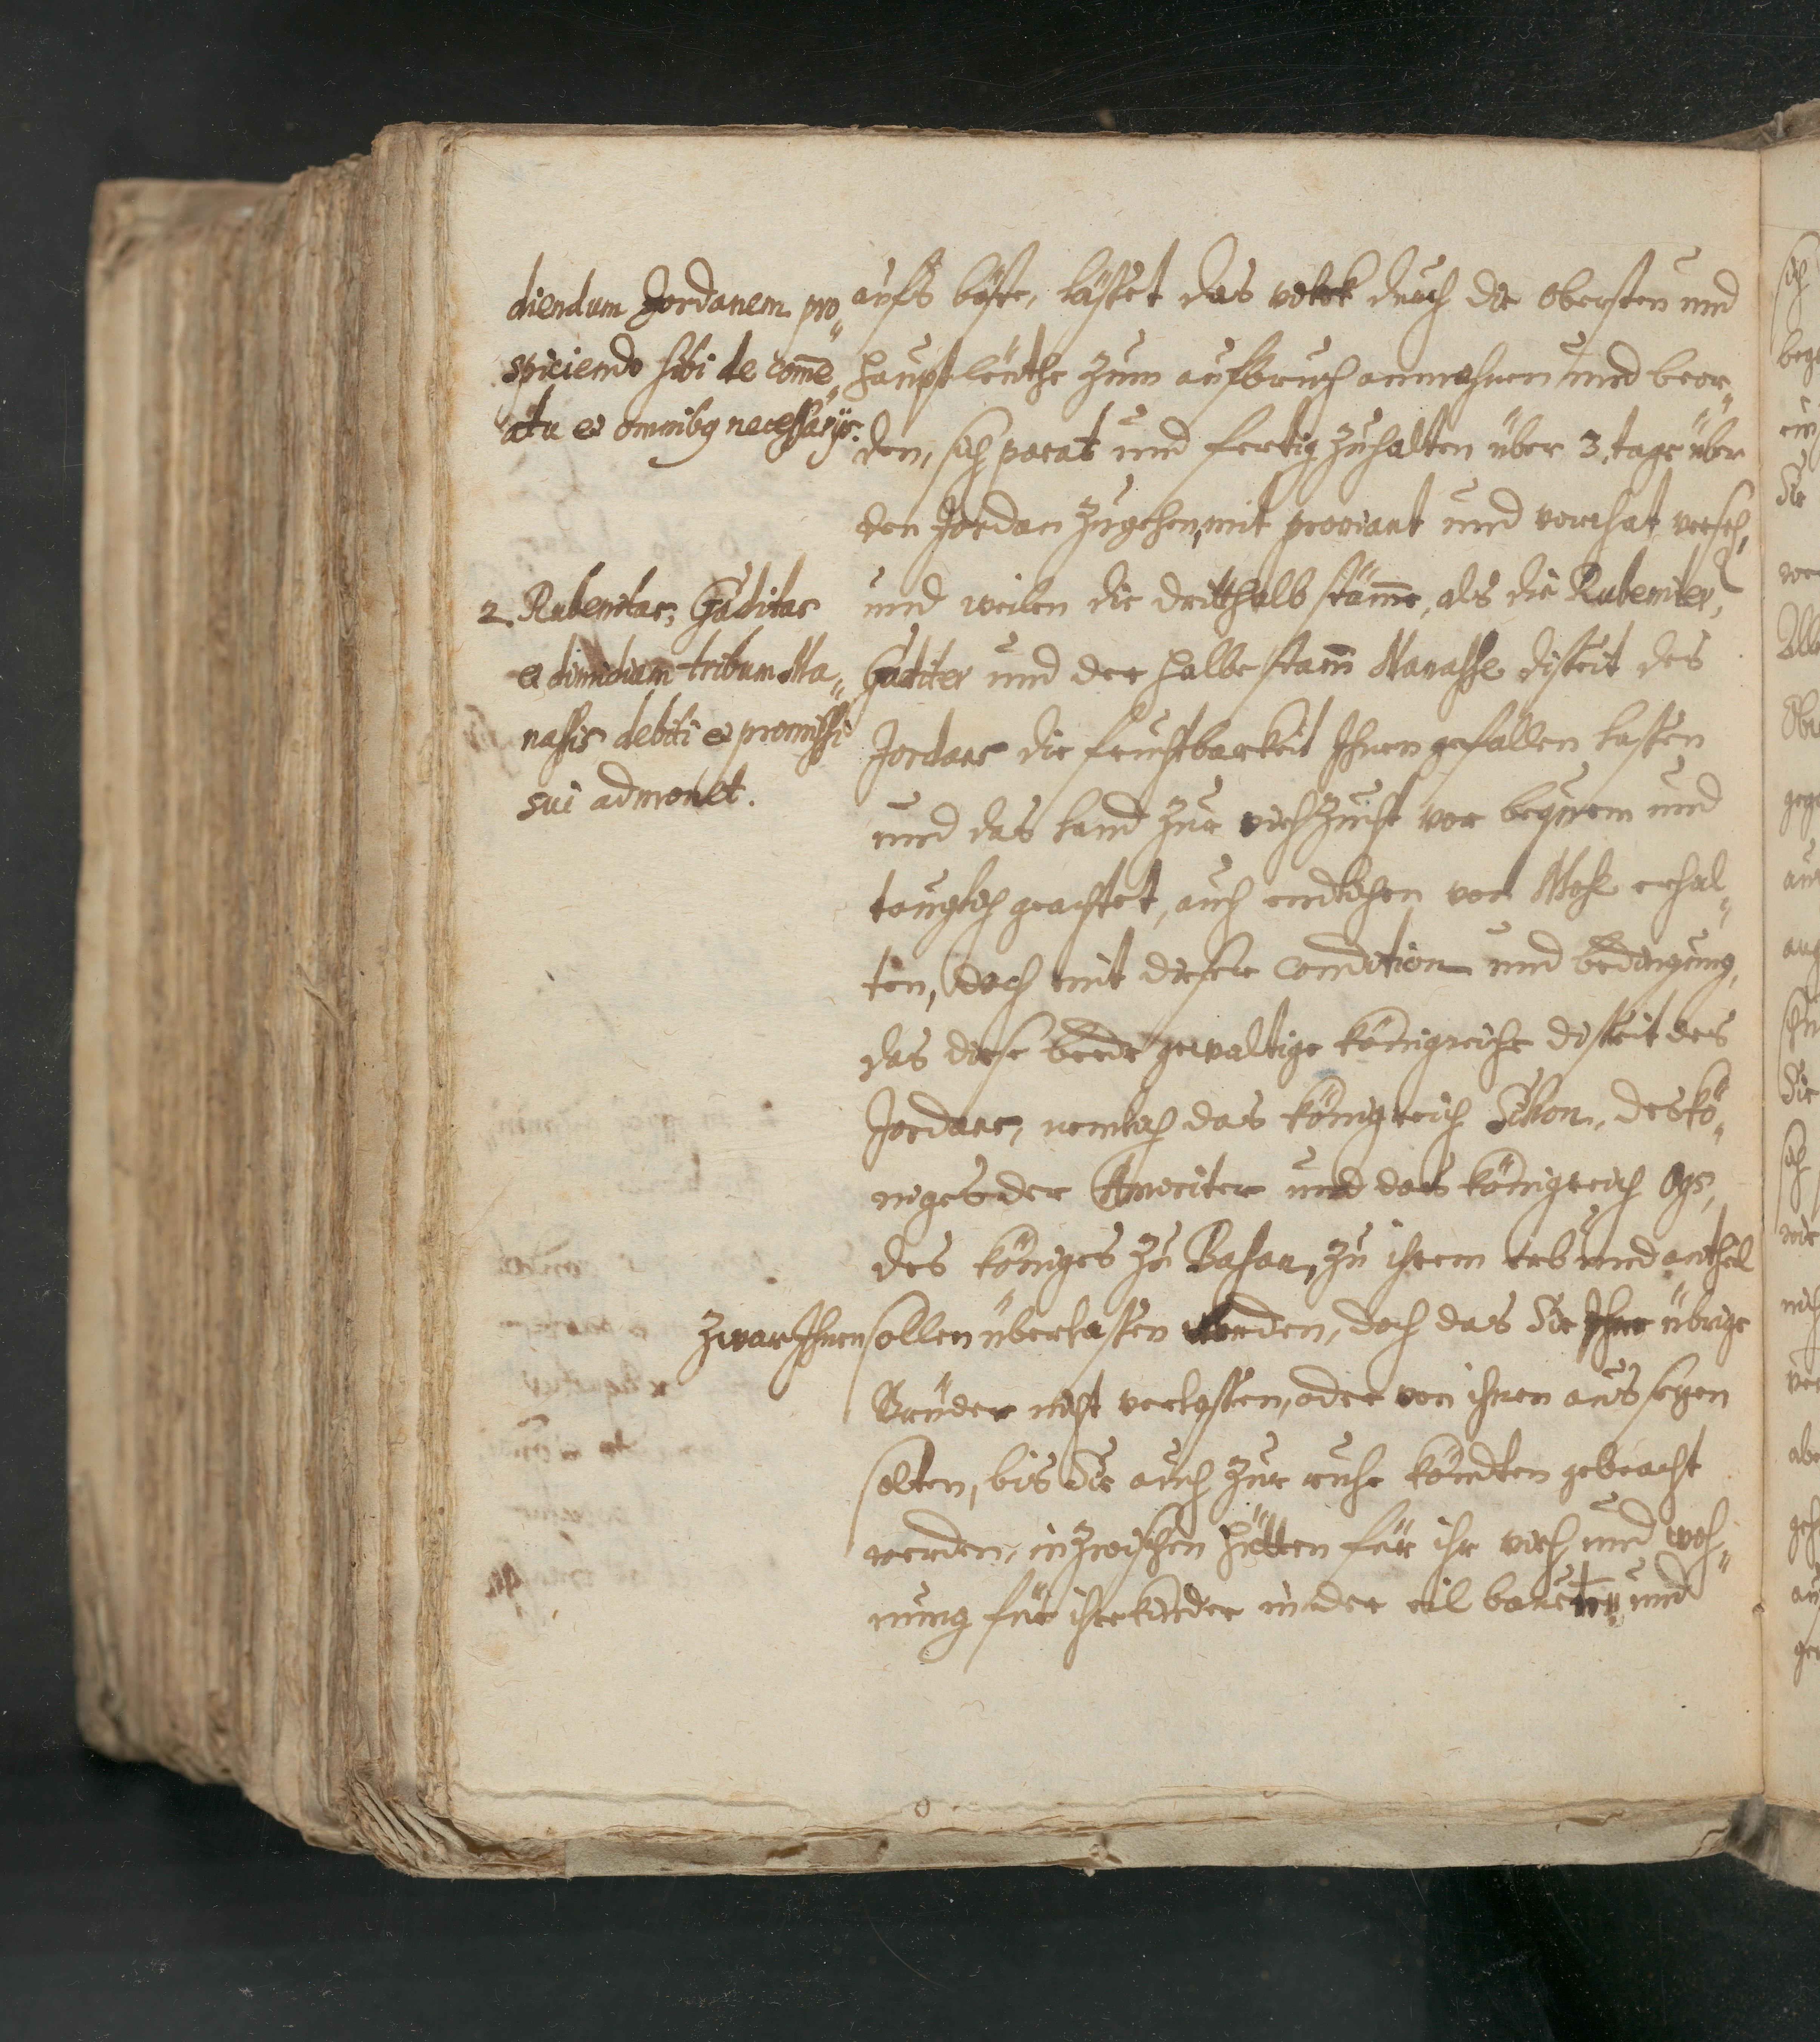 diendum Jordanem pro„
spiciendo sibi de come„
atu et omnibq necessarijs.
2. Rubenitas, Gaditas
et dimidiam tribum Ma„
nassis debiti et promissi
sui admonet.
aufs böste, lässet das volck durch die obersten und
haupt leuthe zum aufbruch anmahnen und beor„
den, sich parat und fertig zuhalten über 3. tage über
den Jordan zugehen, mit proviant und vorrhat verseh„
und weilen die dritthalb stäme, als die Rubeniter,
Gaditer und der halbe stam Manasse disseit des
Jordans die fruchtbarkeit Ihnen gefallen lassen
und das land zur viehzucht vor bequem und
tauglich geachtet, auch endlichen von Mose erhal„
ten, doch mit dieser condition und bedingung,
das diese beede gewaltige königreiche disseit des
Jordans, nemlich das königreich Sihon, des kö„
niges der Amoriter und das königreich Ogs,
des königes zu Basan, zu ihrem erb und antheil
zwar Ihnen sollen überlassen werden, doch das Sie Ihre übrige
Brüder nicht verlassen, oder von ihnen aussezen
solten, bis Sie auch zur ruhe köndten gebracht
werden, inzwischen hütten für ihr vieh und woh„
nung für ihre kinder in der eil baueten und